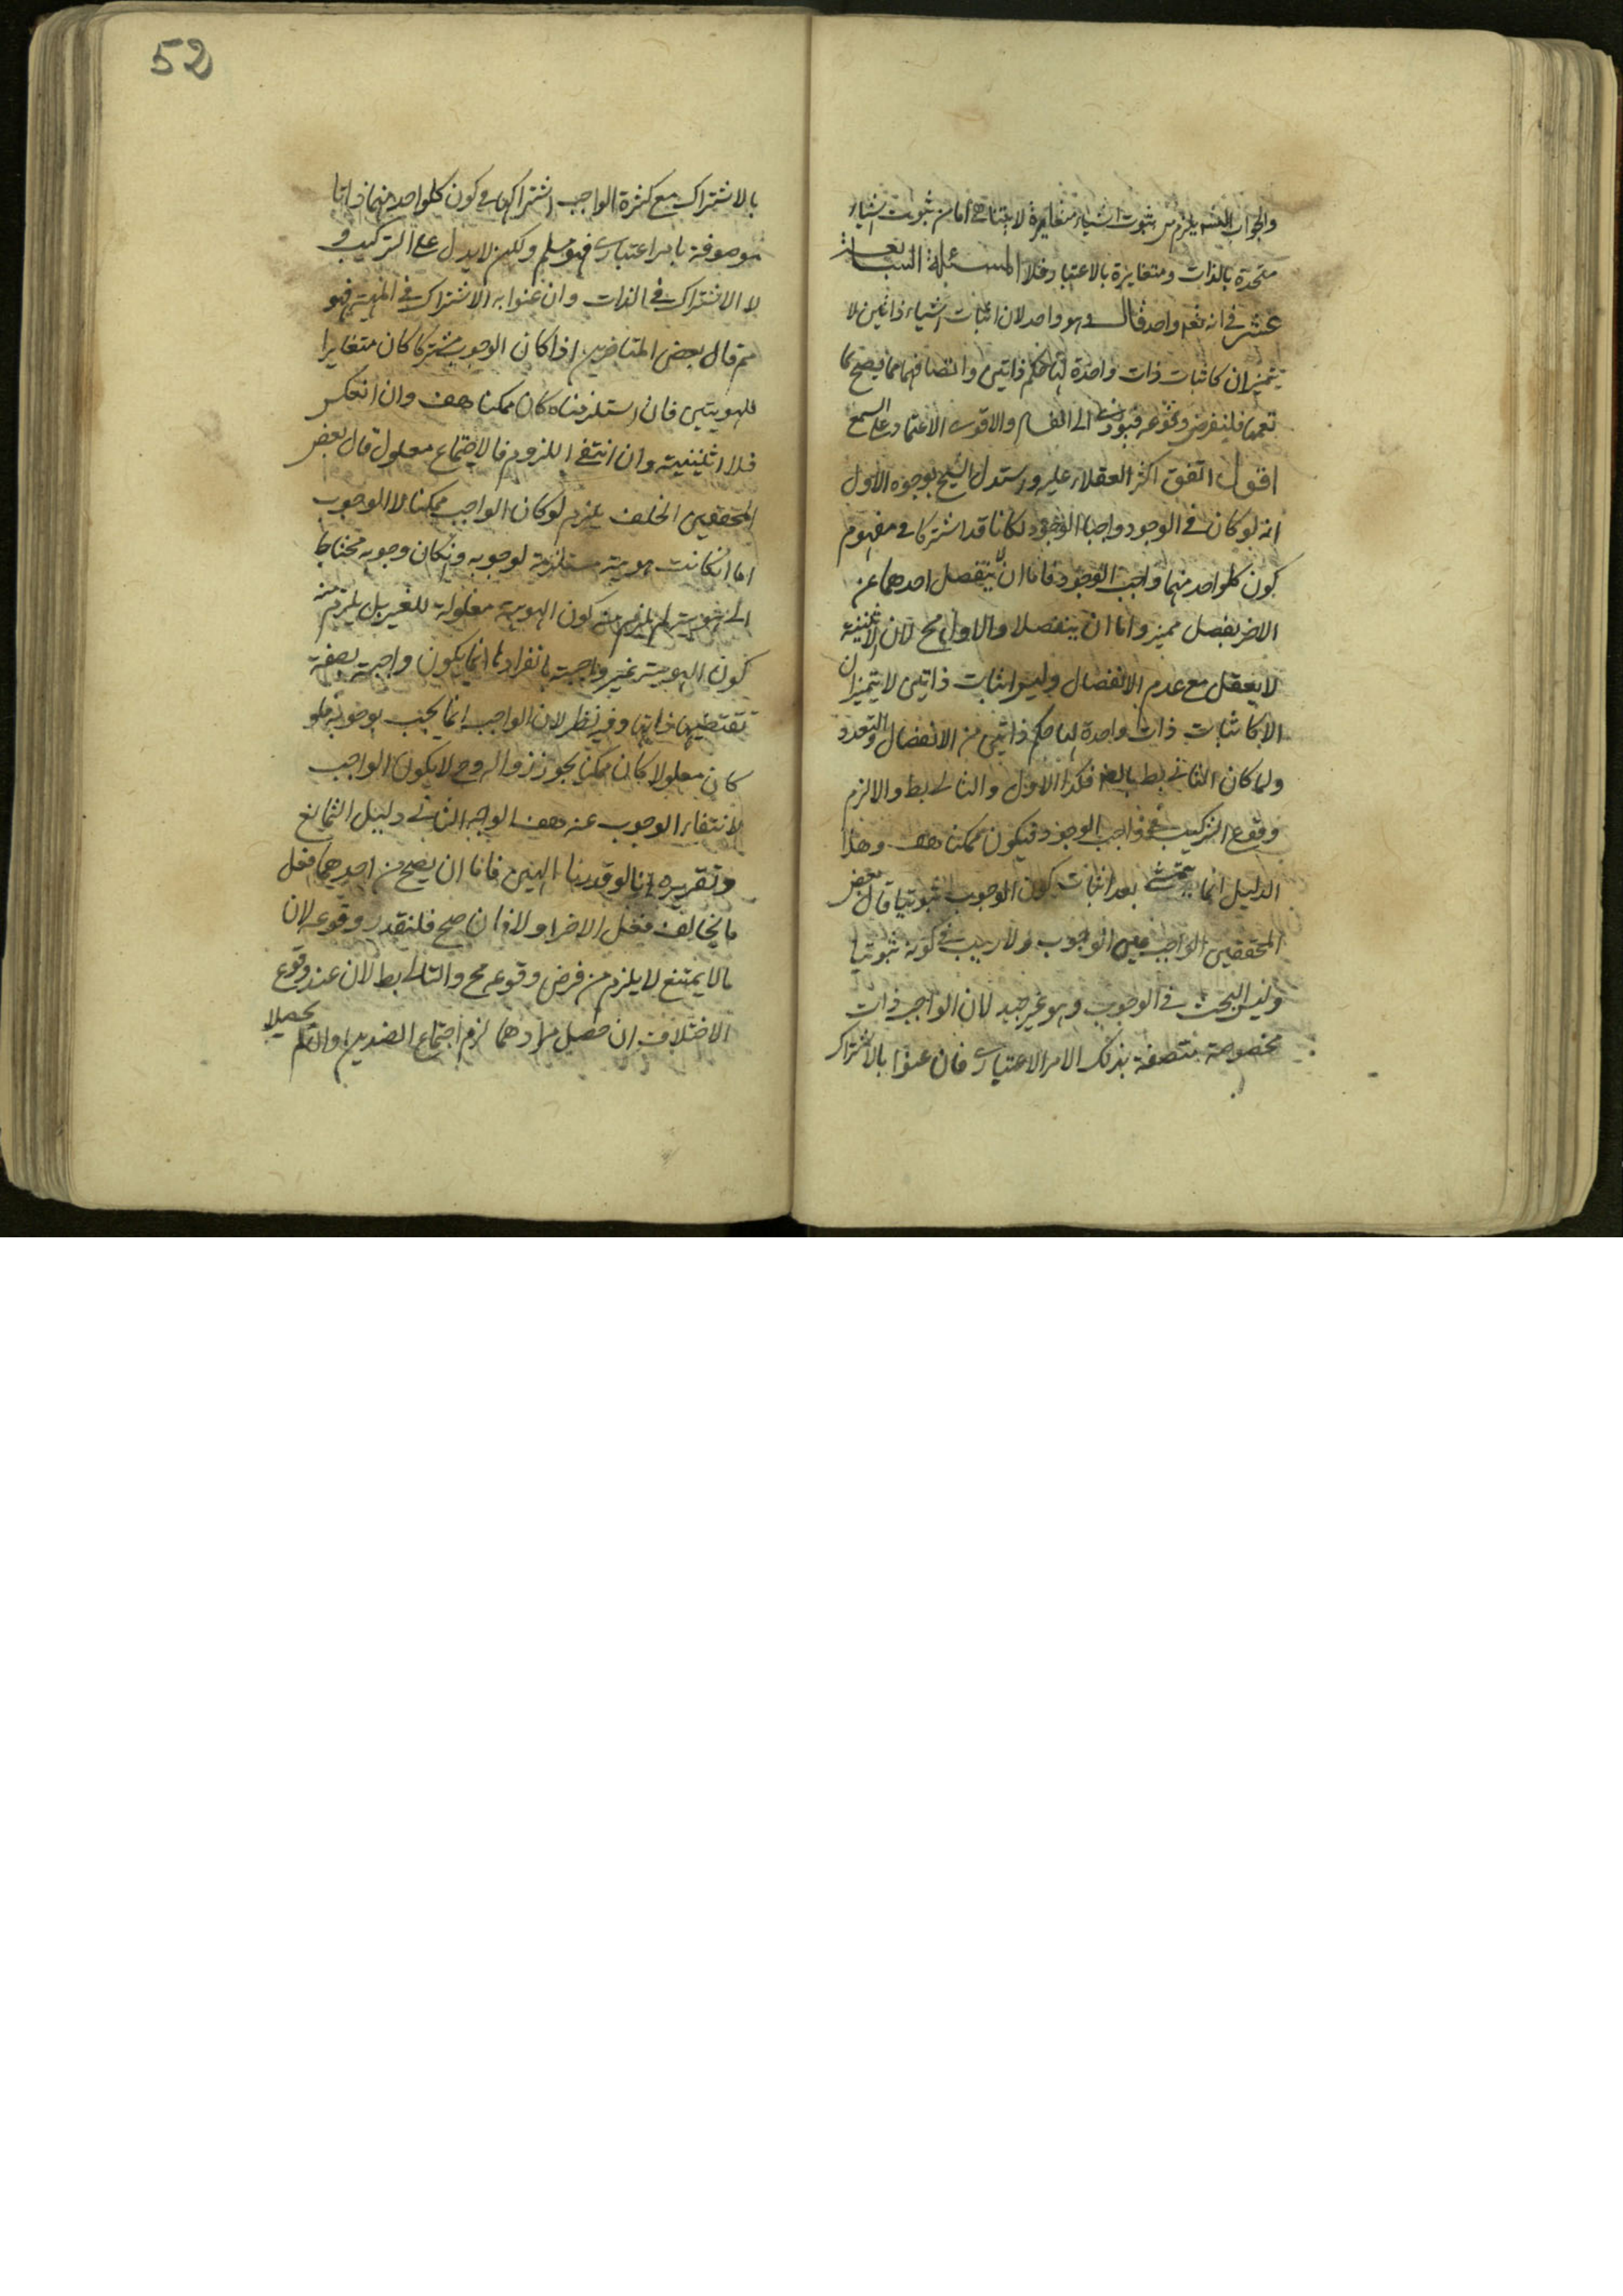 والجواب التسلسل يلزم من ثبوت اشياء متغايرة لا تتناهى اما من ثبوت اشياء
متحدة بالذات ومتغايرة بالاعتبار فلا المسئلة السابعة
عشر في انه تعم واحد قال وهو واحد لان اثبات اشياء ذاتين لا
يتميزان كاثبات ذات واحدة لها حكم ذاتين وانضافهما مما يصح كما
تعمها فلينفرض وقوعه فيؤدى الى الفساد والاقوى الاعتماد على السمع
اقول اتفق اكثر العقلاء عليه واستدل الشيخ بوجوه الاول
انه لو كان في الوجود واجبا الوجود لكانا قد اشتركا في مفهوم
كون كلواحد منهما واجب الوجود فاما ان ينفصل احدهما عن
الاخر بفصل مميز واما ان ينفصلا والاول مح لان الاثنينية
لا يعقل مع عدم الانفصال وليس اثبات ذاتين لا يتميزان
الا كاثبات ذات واحدة لها حكم ذاتين من الانفصال والتعدد
ولما كان الثاني بط بالضرورة فكذا الاول والثاني بط والا لزم
وقوع التركيب في واجب الوجود فيكون ممكنا هف وهذا
الدليل انما يتمشى بعد اثبات كون الوجوب ثبوتيا قال بعض
المحققين الواجب معين الوجوب ولا ريب في كونه ثبوتيا
وليس البحث في الوجوب وهو غير جيد لان الواجب ذات
مخصوصة متصفة بذلك الامر الاعتباري فان عنوا بالاشتراك
52
بالاشتراك مع كثرة الواجب اشتراكهما في كون كلواحد منهما ذاتا
موصوفة بامر اعتباري فهو مسلم ولكن لا يدل على التركيب و
لا الاشتراك في الذات وان عنوا به الاشتراك في المهية فهو
مم قال بعض المتاخرين اذا كان الوجوب مشتركا كان متغايرا
للهويتين فان استلزمناه كان ممكنا هف وان انعكس
فلا اثنينية وان انتفى اللزوم فالاجتماع معلول قال بعض
المحققين الخلف يلزم لو كان الواجب ممكنا لا الوجوب
اما انكانت هويته مستلزمة لوجوبه وانكان وجوبه محتاجا
الى هويته لم يلزم من كون الهوية معلولة للغير بل يلزم منه
كون الهوية غير واجبة بانفرادها انما يكون واجبة بصفة
تقتضيها ذاتها وفيه نظر لان الواجب انما يجب بوجوبه فلو
كان معلولا كان ممكنا يجوز زواله وح لا يكون الواجب
لانتفاء الوجوب عنه هف الوجه الثاني دليل التمانع
وتقريره انا لو قدرنا الهين فاما ان يصح من احدهما فعل
ما يخالف فعل الاخر او لا فان صح فلنقدر وقوعه لان
ما لا يمتنع لا يلزم من فرض وقوعه مح والتالى بط لان عند وقوع
الاختلاف ان حصل مرادهما لزم اجتماع الضدين وان لم يحصلا